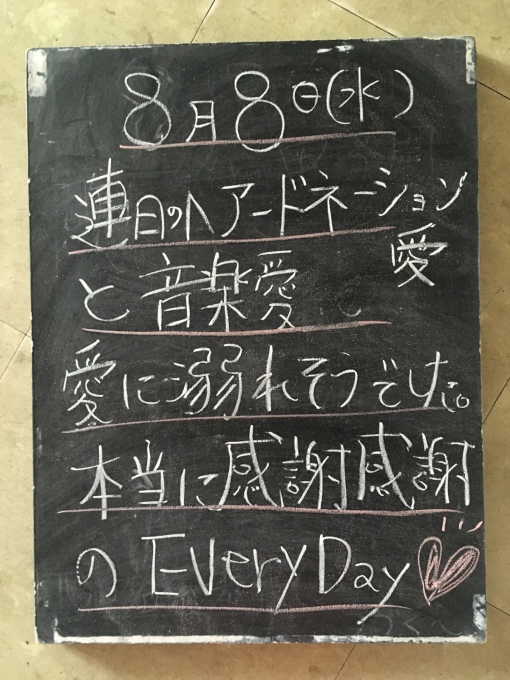 8月8日(水)
連日のヘアードネーション
愛
と音楽愛
愛に溺れそうでした。
本当に感謝感謝
のEveryDay